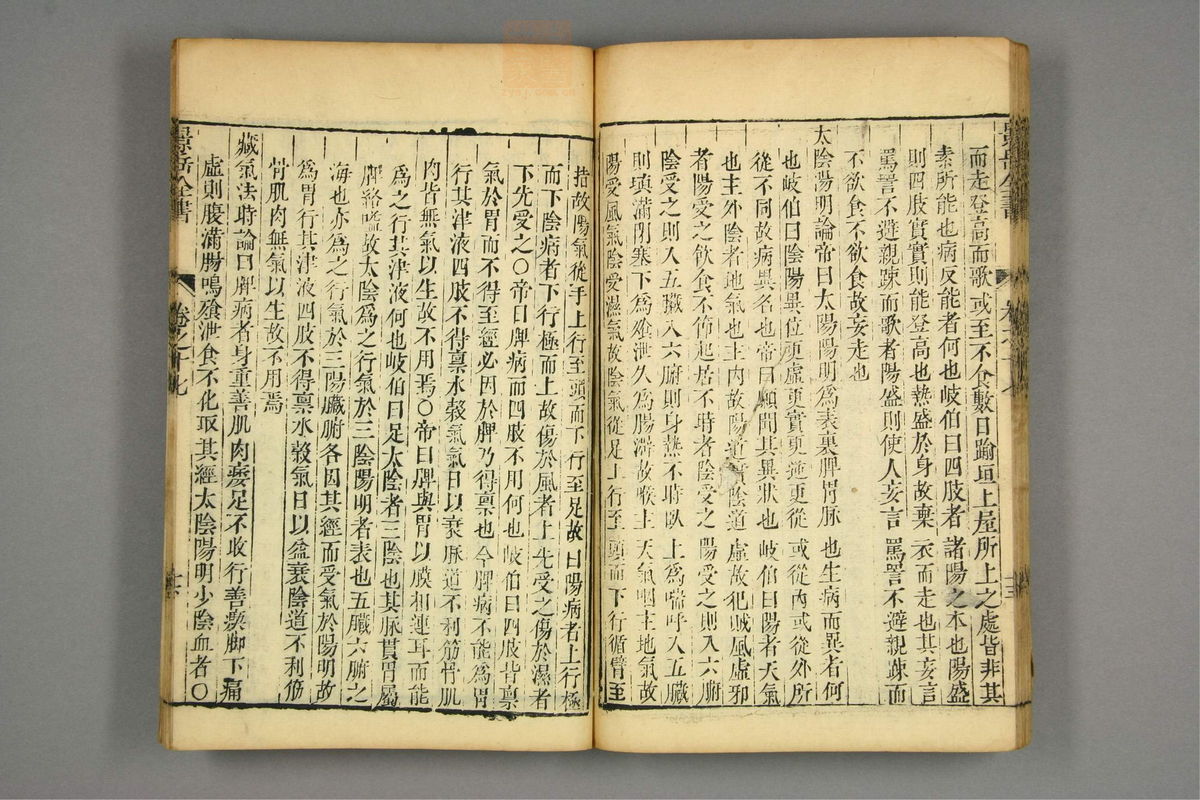 而走登高而歌或至不食數日踰垣上屋所上之處皆非其
素所能也病反能者何也岐伯曰四肢者諸陽之本也陽盛
則四肢實實則能登高也熱盛於身故棄衣而走也其妄言
罵詈不避親疎而歌者陽盛則使人妄言罵詈不避親疎而
不欲食不欲食故妄走也
太陰陽明論帝曰太陰陽明為表裏脾胃脉也生病而異者何
也岐伯曰陰陽異位更虛更實更逆更從或從內或從外所
從不同故病異名也帝曰願聞其異狀也岐伯曰陽者天氣
也主外陰者地氣也主內故陽道實陰道虛故犯賊風虛邪
者陽受之飲食不節起居不時者陰受之陽受之則入六腑
陰受之則入五臟入六腑則身熱不時臥上為喘呼入五臟
則䐜滿閉塞下為飧泄久為腸澼故喉主天氣咽主地氣故
陽受風氣陰受濕氣故陰氣從足上行至頭而下行循臂至
指故陽氣從手上行至頭而下行至足故曰陽病者上行極
而下陰病者下行極而上故傷於風者上先受之傷於濕者
下先受之〇帝曰脾病而四肢不用何也岐伯曰四肢皆禀
氣於胃而不得至經必因於脾乃得禀也今脾病不能為胃
行其津液四肢不得禀水穀氣氣日以衰脉道不利筋骨肌
肉皆無氣以生故不用焉〇帝曰脾與胃以膜相連耳而能
為之行其津液何也岐伯曰足太陰者三陰也其脉貫胃屬
脾絡嗌故太陰為之行氣於三陰陽明者表也五臟六腑之
海也亦為之行氣於三陽臟腑各因其經而受氣於陽明故
為胃行其津液四肢不得禀水穀氣日以益衰陰道不利筋
骨肌肉無氣以生故不用焉
藏氣法時論曰脾病者身重善肌肉痿足不收行善瘈脚下痛
虛則腹滿腸鳴飧泄食不化取其經太陰陽明少陰血者〇
景岳全書
卷之十七